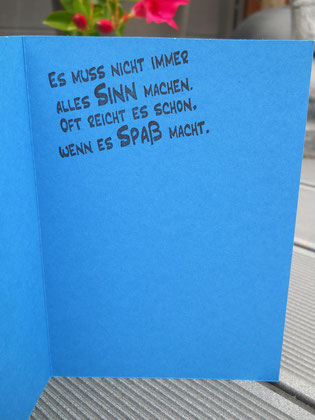 Es muss nicht immer
alles Sinn machen.
Oft reicht es schon,
wenn es Spaß macht.